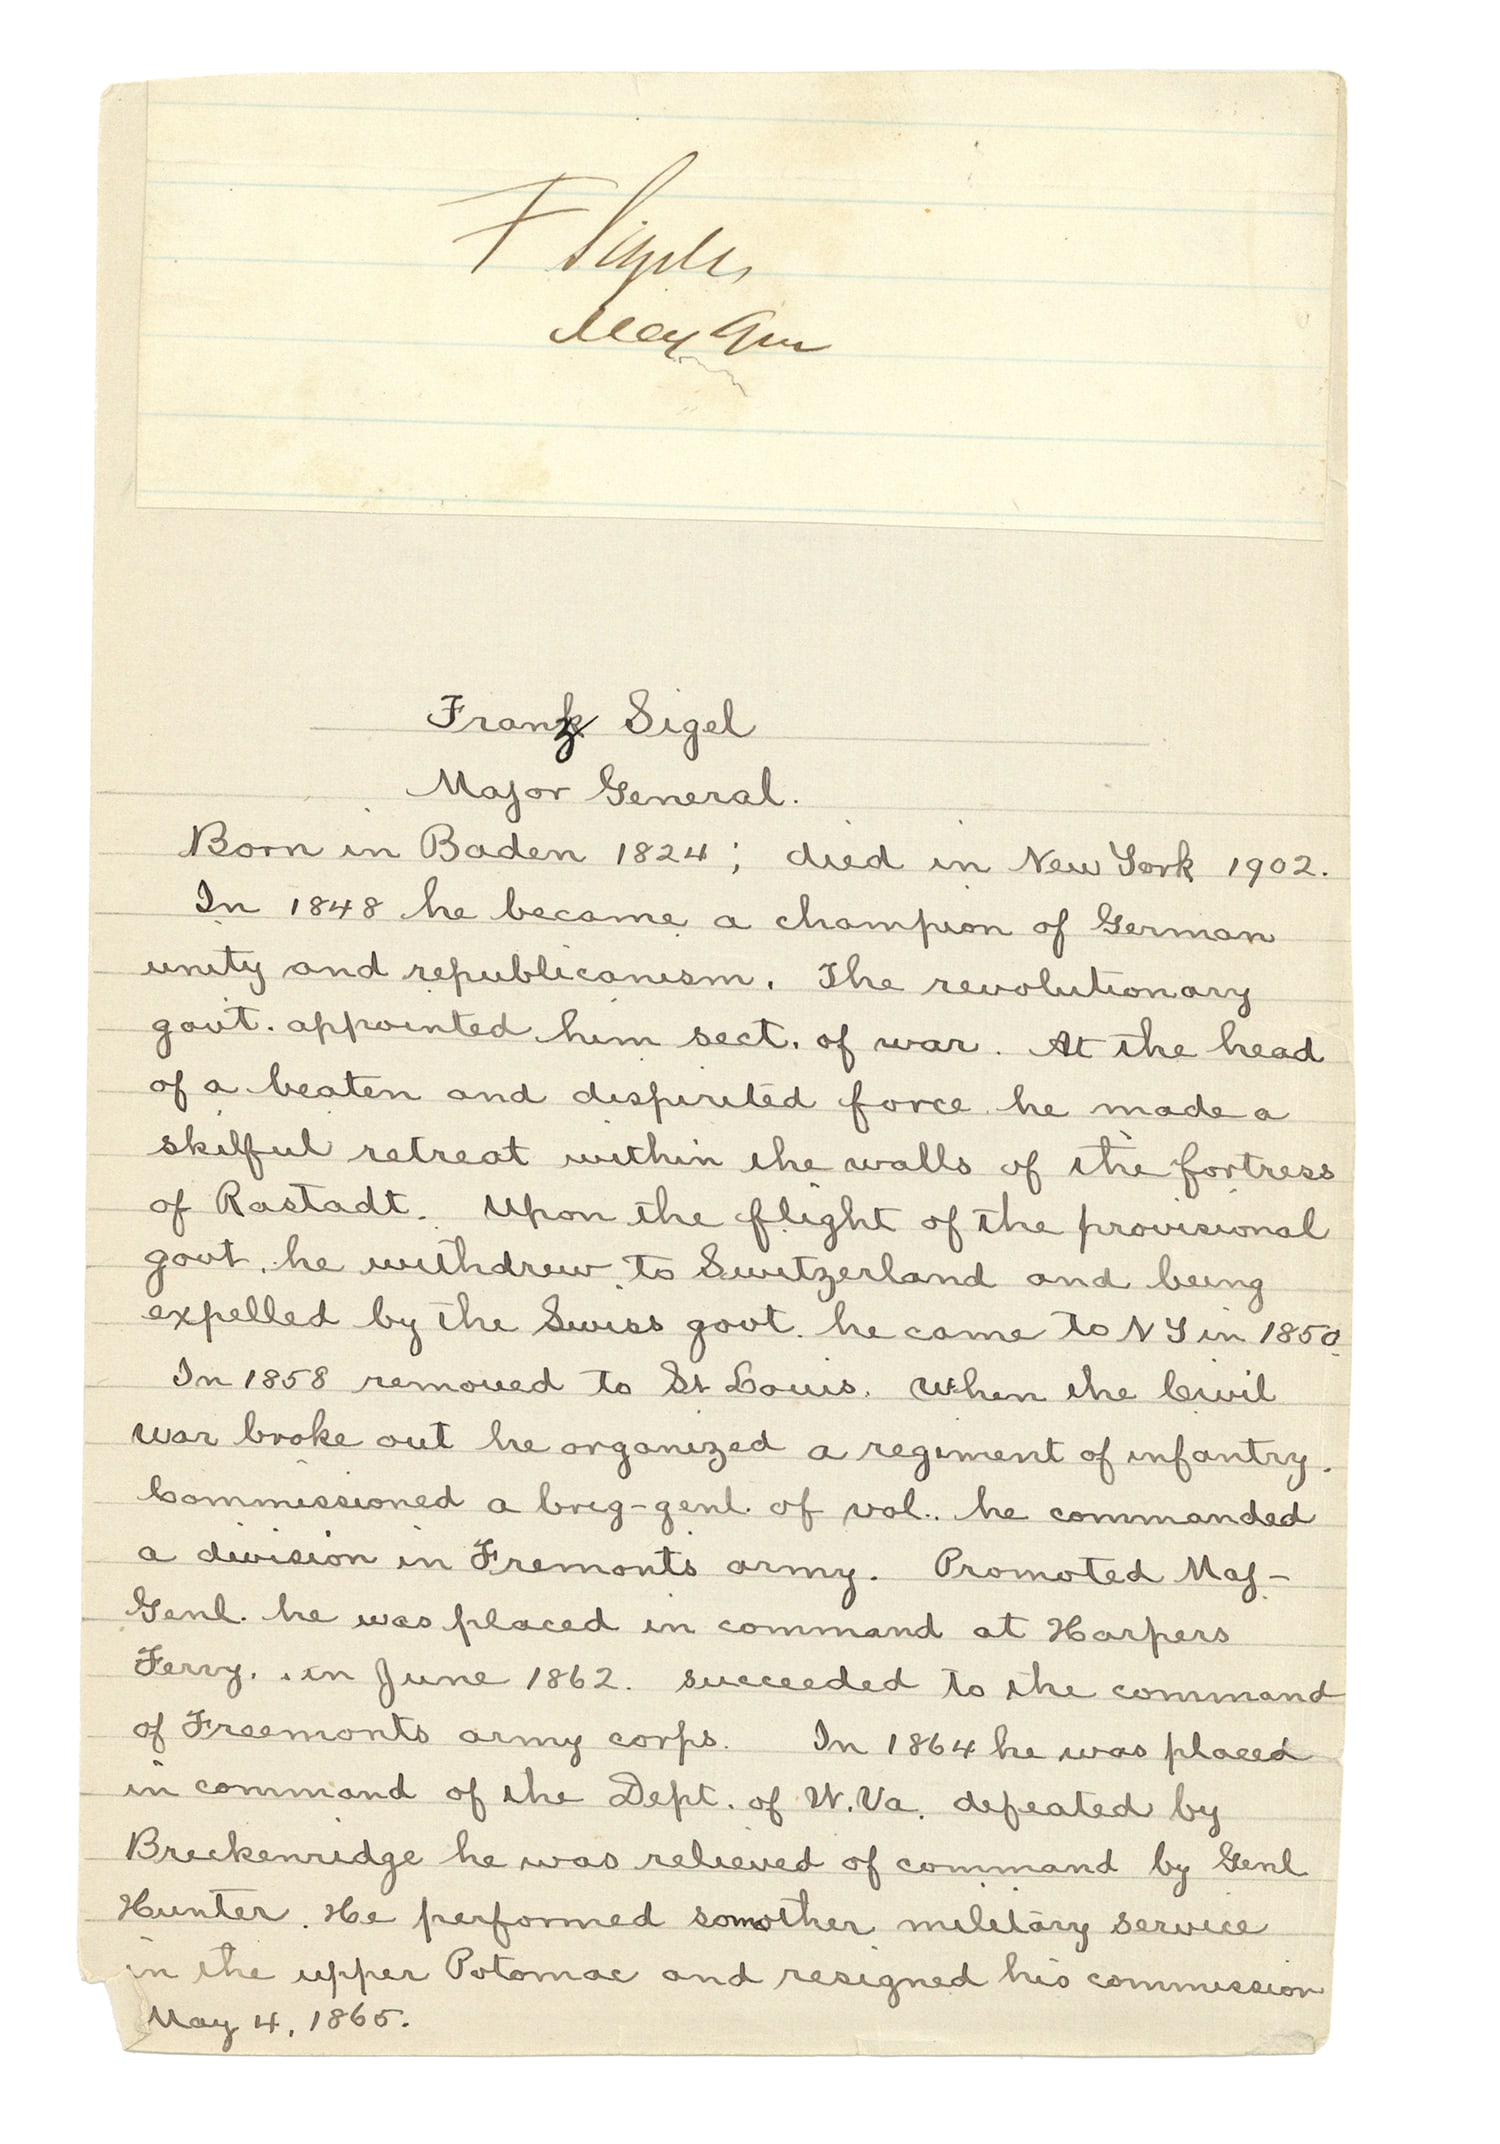 F Sigel,
Maj Gen
Franz Sigel
Major General.
Born in Baden 1824; died in New York 1902.
In 1848 he became a champion of German
unity and republicanism. The revolutionary
gov't. appointed him sect. of war. At the head
of a beaten and dispirited force he made a
skilful retreat within the walls of the fortress
of Rastadt. Upon the flight of the provisional
govt. he withdrew to Switzerland and being
expelled by the Swiss govt. he came to NY in 1850.
In 1858 removed to St Louis. When the Civil
war broke out he organized a regiment of infantry.
Commissioned a brig-genl. of vol.. he commanded
a division in Fremonts army. Promoted Maj-
Genl. he was placed in command at Harpers
Ferry. in June 1862. succeeded to the command
of Freemonts army corps. In 1864 he was placed
in command of the Dept. of W. Va. defeated by
Breckenridge he was relieved of command by Genl
Hunter. He performed som other military service
in the upper Potomac and resigned his commission
May 4, 1865.